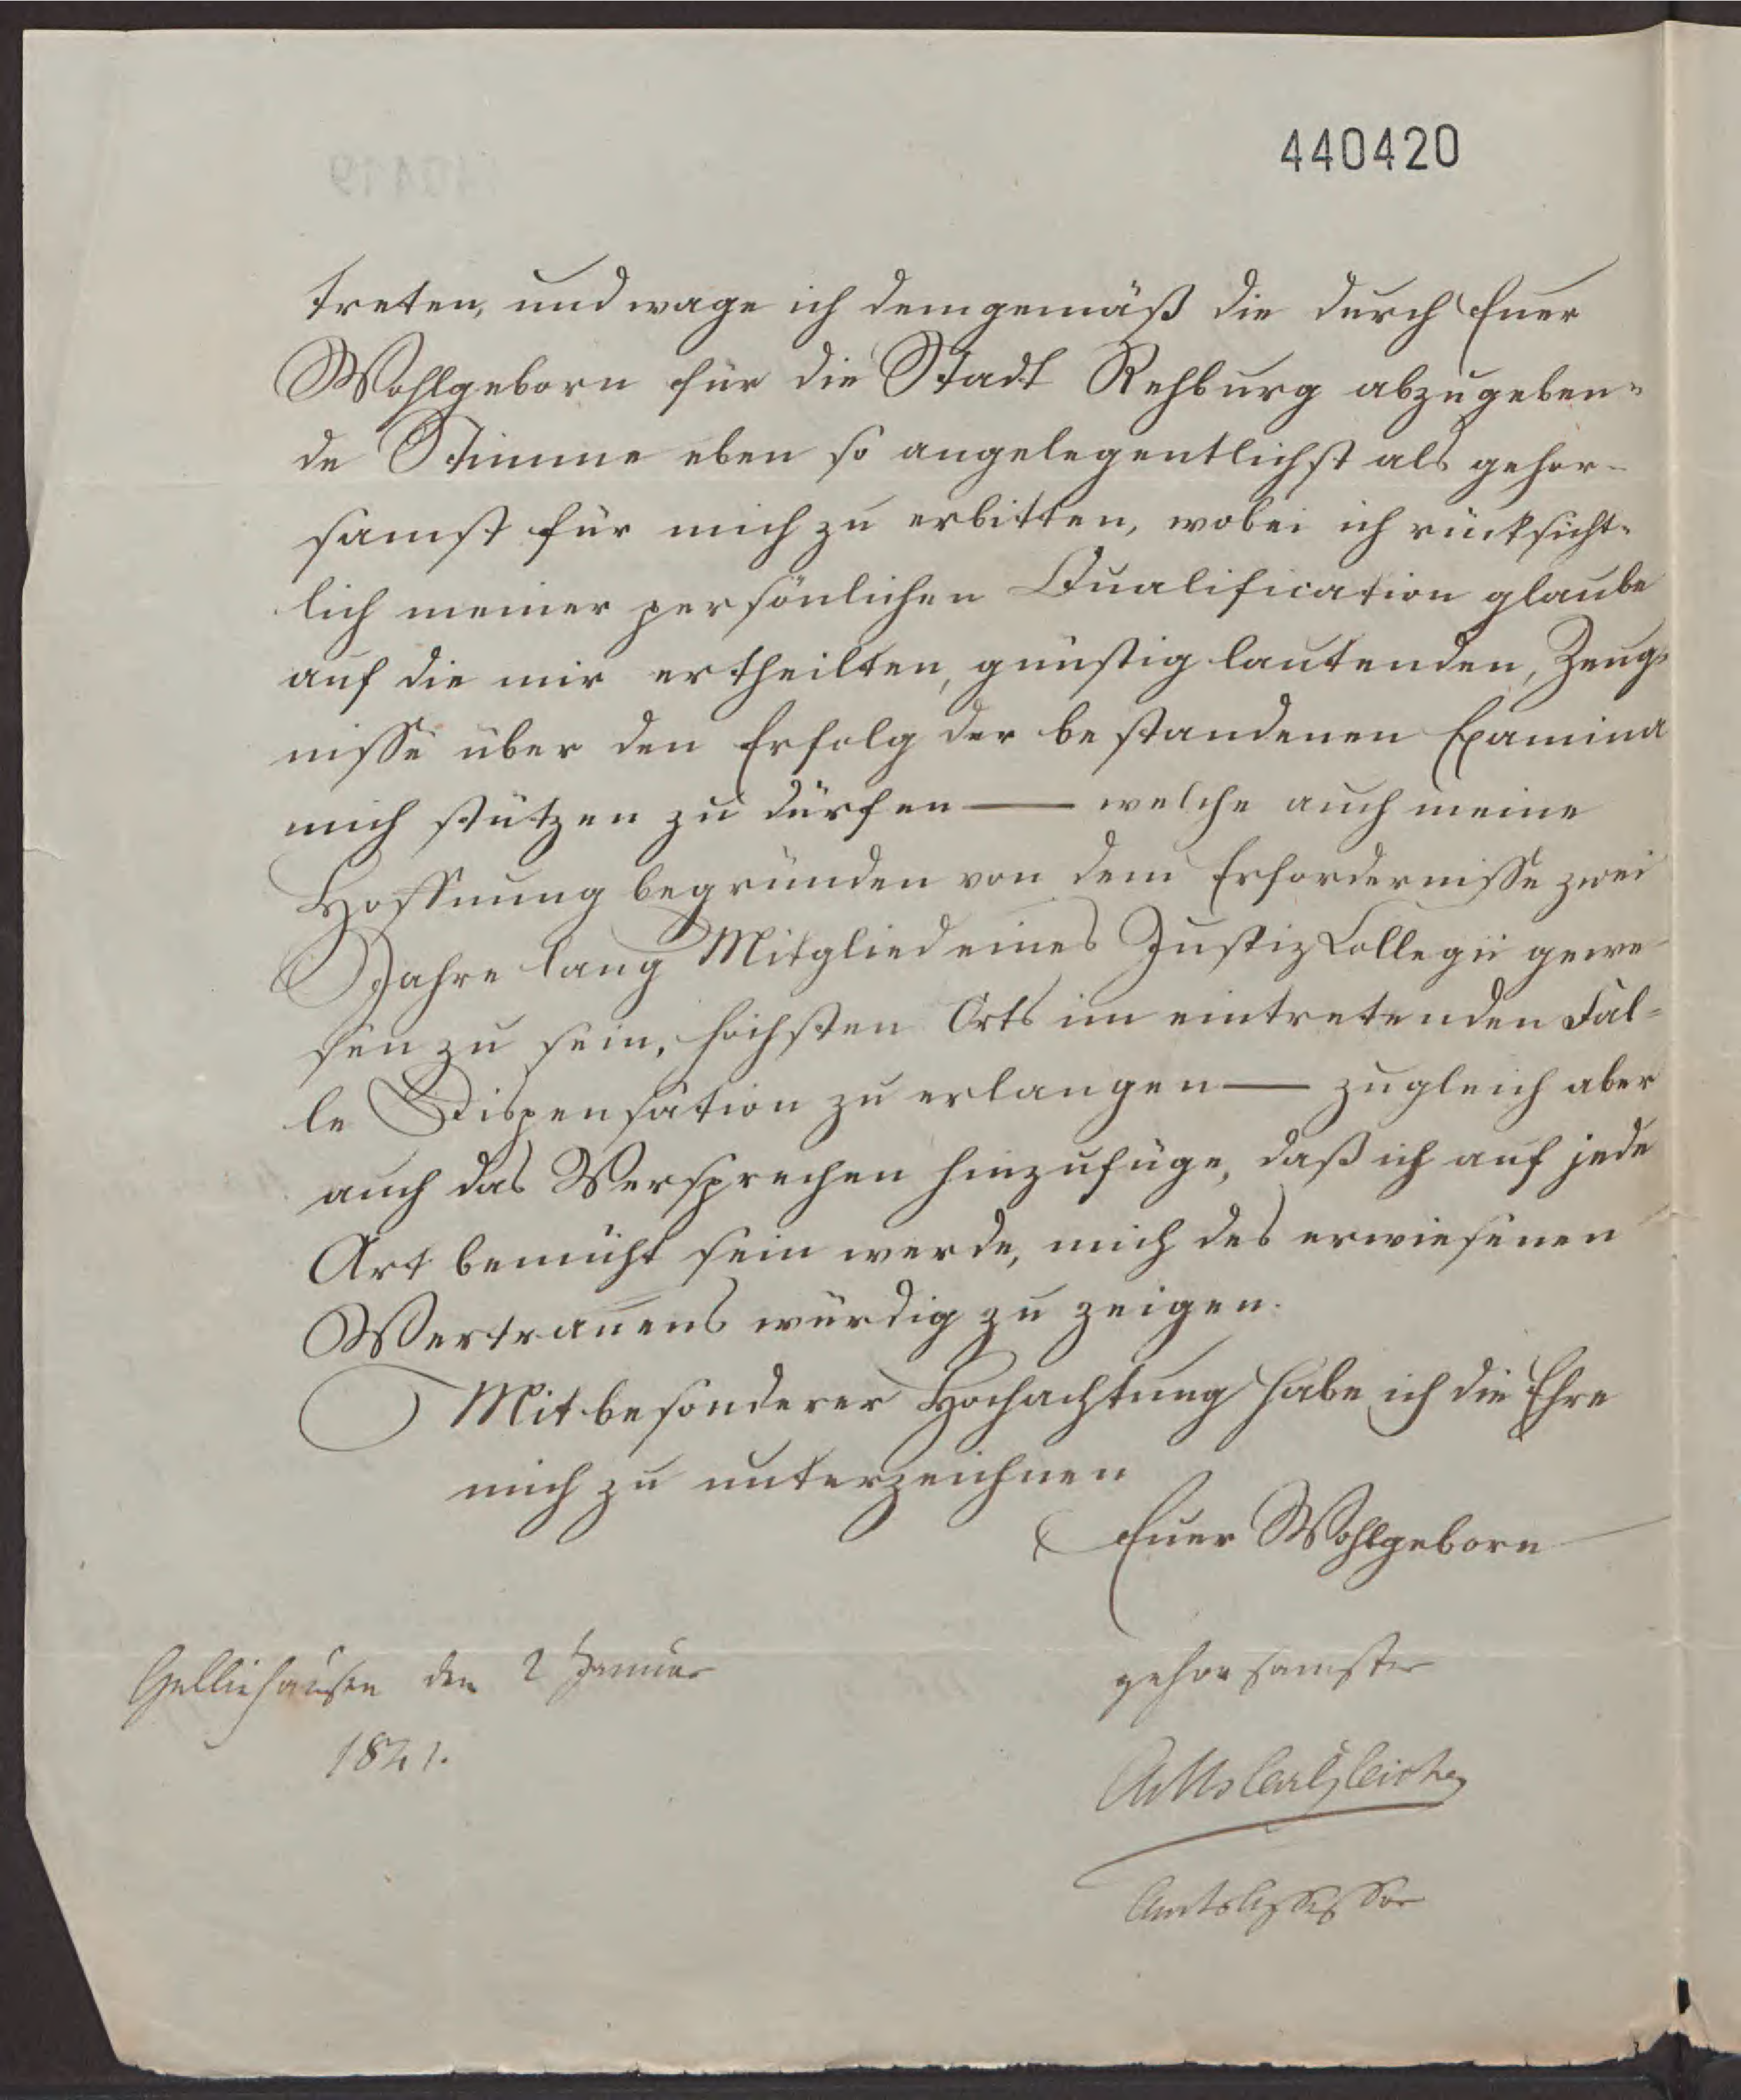 440420
treten, und wage ich demgemäß die durch Euer
Wohlgeborn für die Stadt Rehburg abzugeben-
de Stimme eben so angelegentlichst als gehor-
samst für mich zu erbitten, wobei ich rücksicht-
lich meiner persönlichen Qualification glaube
auf die mir ertheilten, günstig lautenden, Zeug-
nisse über den Erfolg der bestandenen Examina
mich stützen zu dürfen — welche auch meine
Hoffnung begründen von dem Erfordernisse zwei
Jahre lang Mitglied eines Justiz Collegii gewe-
sen zu sein, höchsten Orts im eintretenden Fal-
le Dispensation zu erlangen — zugleich aber
auch das Versprechen hinzufüge, daß ich auf jede
Art bemüht sein werde, mich des erwiesenen
Vertrauens würdig zu zeigen.
Mit besonderer Hochachtung habe ich die Ehre
mich zu unterzeichnen
Euer Wohlgeborn
Gelliehausen den 2 Januar
gehorsamster
1841.
Amtsassessor